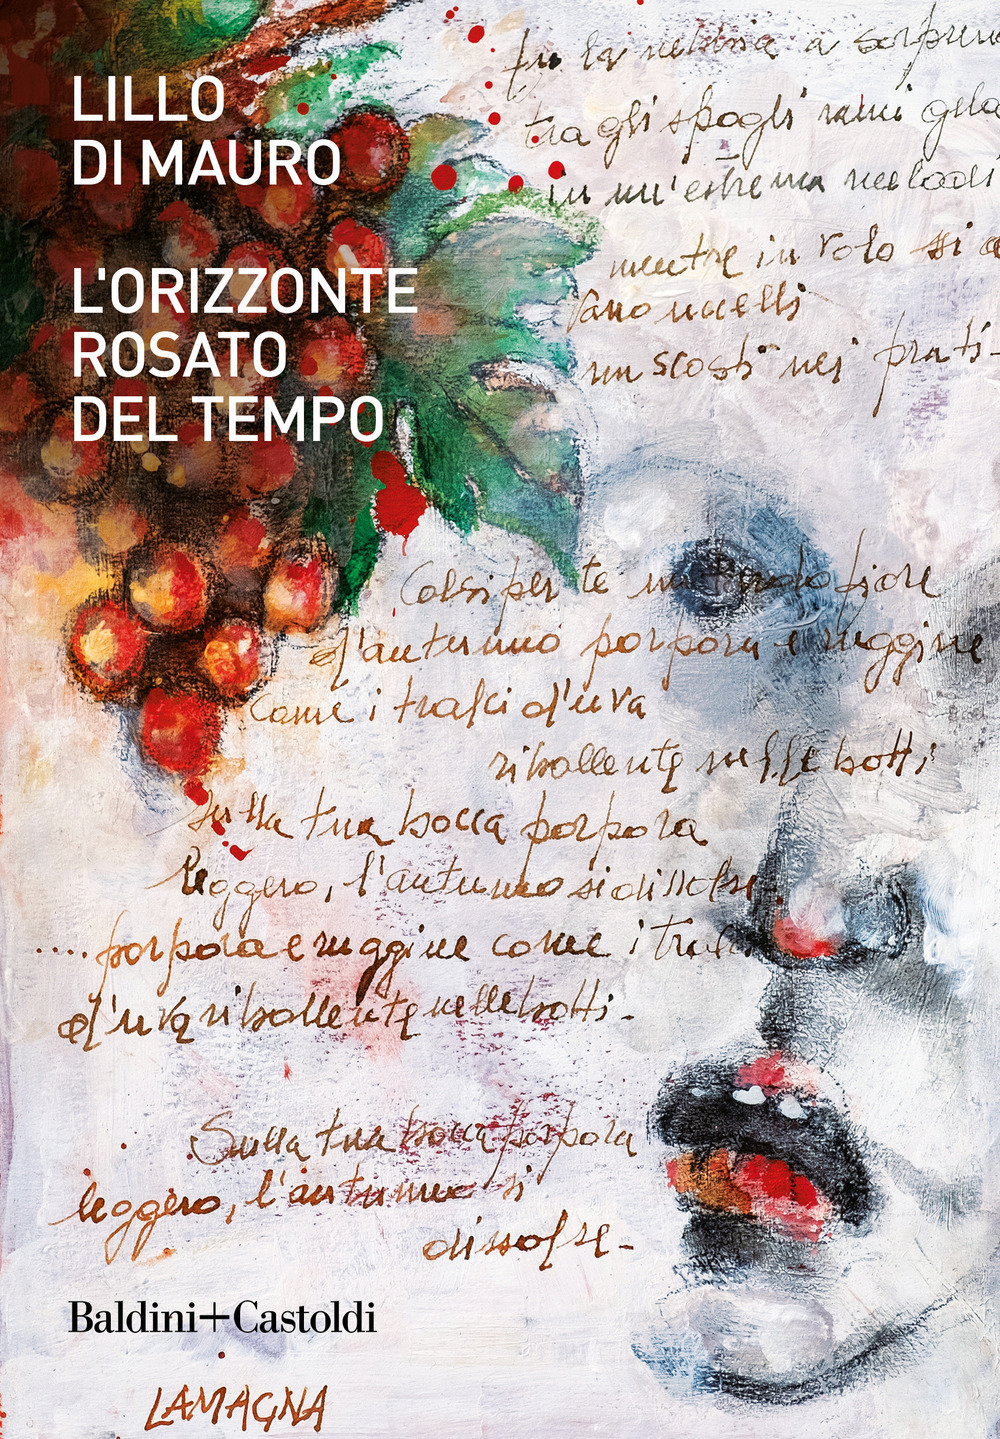 LILLO
DI MAURO
L'ORIZZONTE
ROSATO
DEL TEMPO
fu la nebbia a sorpren
tra gli spogli rami gela
in un'estrema melodi
mentre in volo si a
vano uccelli
nascosti nei prati-
Colsi per te un tardo fiore
d'autunno porpora e ruggine
Come i tralci d'uva
ribollente nelle botti
Sulla tua bocca porpora
leggero, l'autunno si dissolse-
.... porpora e ruggine come i tralci
d'uva ribollente nelle botti-
Sulla tua bocca porpora
leggero, l'autunno si
dissolse-
Baldini+Castoldi
LAMAGNA